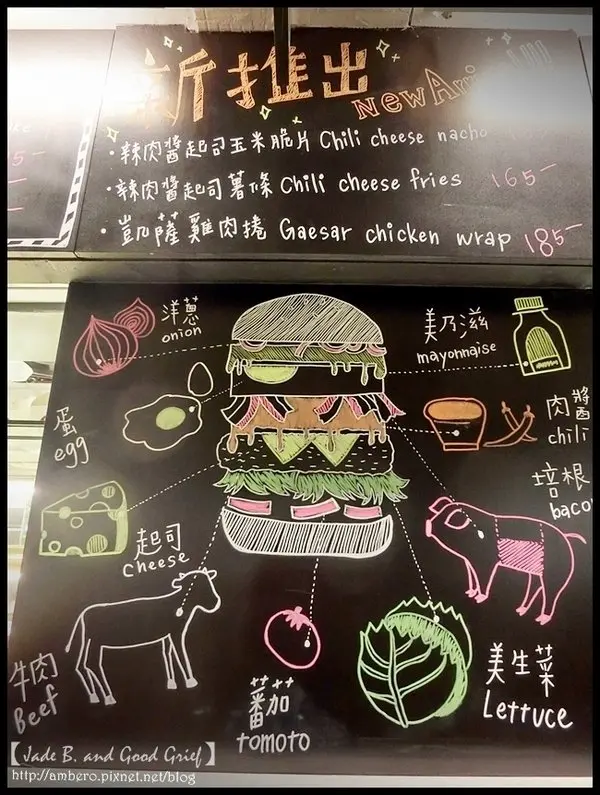 新推出
New Arri
・辣肉醬起司玉米脆片 Chili cheese nacho
・辣肉醬起司薯條 Chili cheese fries 165-
・凱薩雞肉捲 Gaesar chicken wrap 185-
洋蔥
onion
美乃滋
mayonnaise
蛋
egg
肉醬
chili
培根
baco
起司
cheese
牛肉
Beef
蕃加
tomoto
美生菜
Lettuce
【Jade B. and Good Grief】
http://ambero.pixnet.net/blog